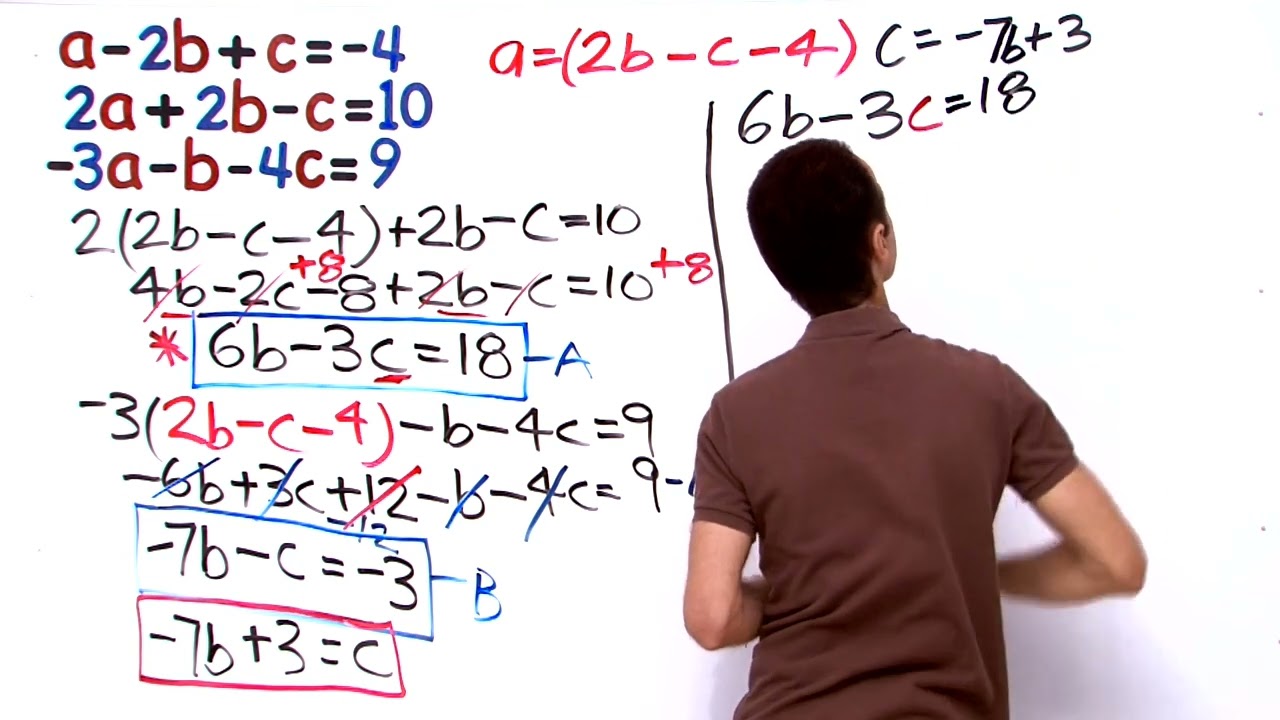 a-2b+c=-4
2a+2b-c=10
-3a-b-4c=9
2(2b-c-4)+2b-c=10
+8 +8
4b-2c-8+2b-c=10
* 6b-3c=18 -A
-3(2b-c-4)-b-4c=9
-6b+3c+12-b-4c=9-
-12
-7b-c=-3 -B
-7b+3=c
a=(2b-c-4) c=-7b+3
6b-3c=18